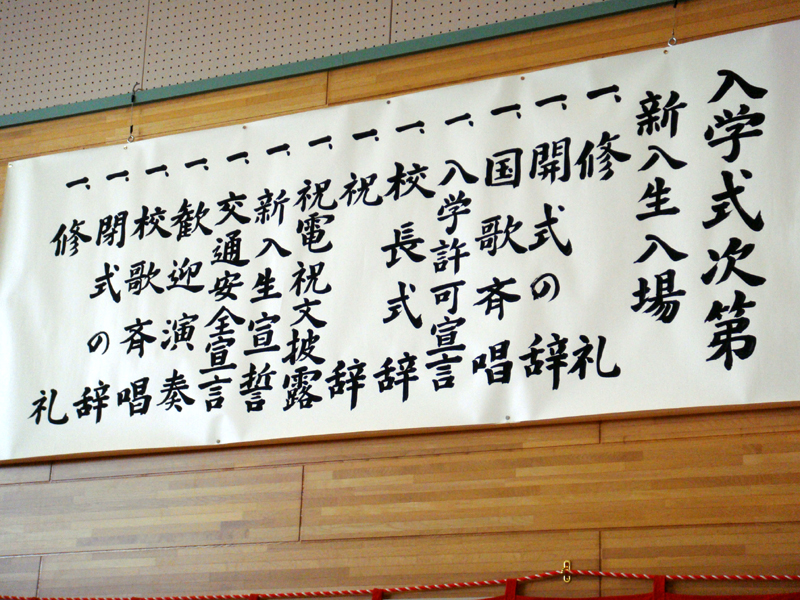 入学式次第
新入生入場
一、修礼
一、開式の辞
一、国歌斉唱
一、入学許可宣言
一、校長式辞
一、祝辞
一、祝電祝文披露
一、新入生宣誓
一、交通安全宣言
一、歓迎演奏
一、校歌斉唱
一、閉式の辞
一、修礼